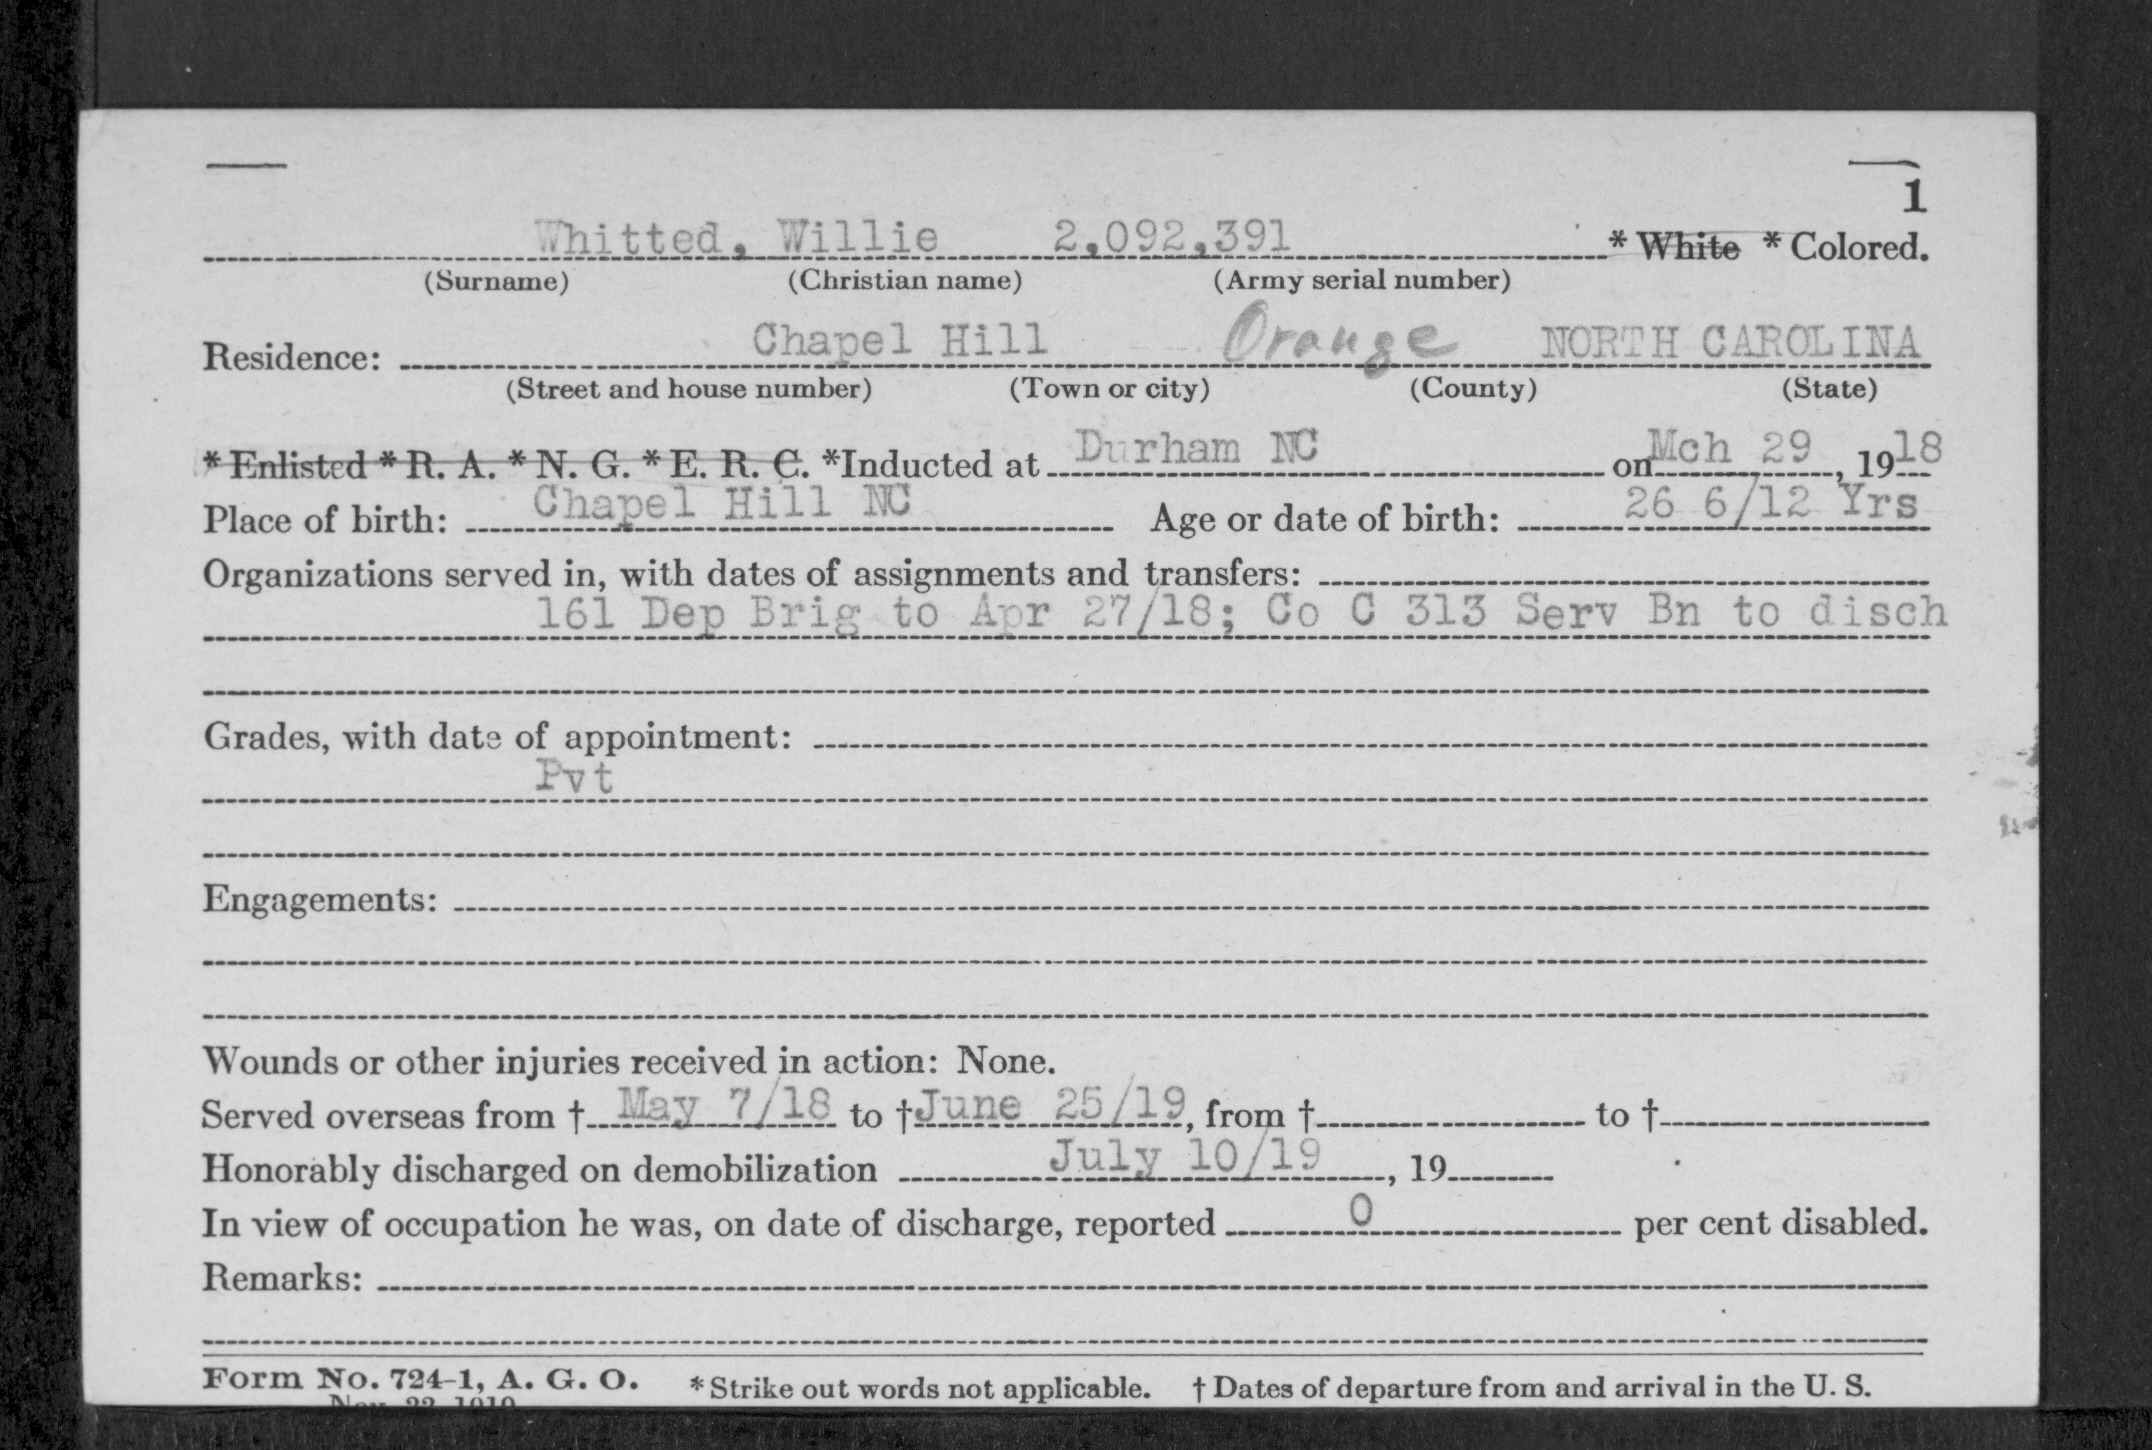 1
Whitted, Willie 2,092,391 * White * Colored.
(Surname) (Christian name) (Army serial number)
Residence: Chapel Hill Orange NORTH CAROLINA
(Street and house number) (Town or city) (County) (State)
* Enlisted * R. A. * N. G. * E. R. C. *Inducted at Durham NC on Mch 29, 1918
Place of birth: Chapel Hill NC Age or date of birth: 26 6/12 Yrs
Organizations served in, with dates of assignments and transfers:
161 Dep Brig to Apr 27/18; Co C 313 Serv Bn to disch
Grades, with date of appointment:
Pvt
Engagements:
Wounds or other injuries received in action: None.
Served overseas from † May 7/18 to † June 25/19, from † to †
Honorably discharged on demobilization July 10/19, 19
In view of occupation he was, on date of discharge, reported 0 per cent disabled.
Remarks:
Form No. 724-1, A. G. O. * Strike out words not applicable. † Dates of departure from and arrival in the U. S.